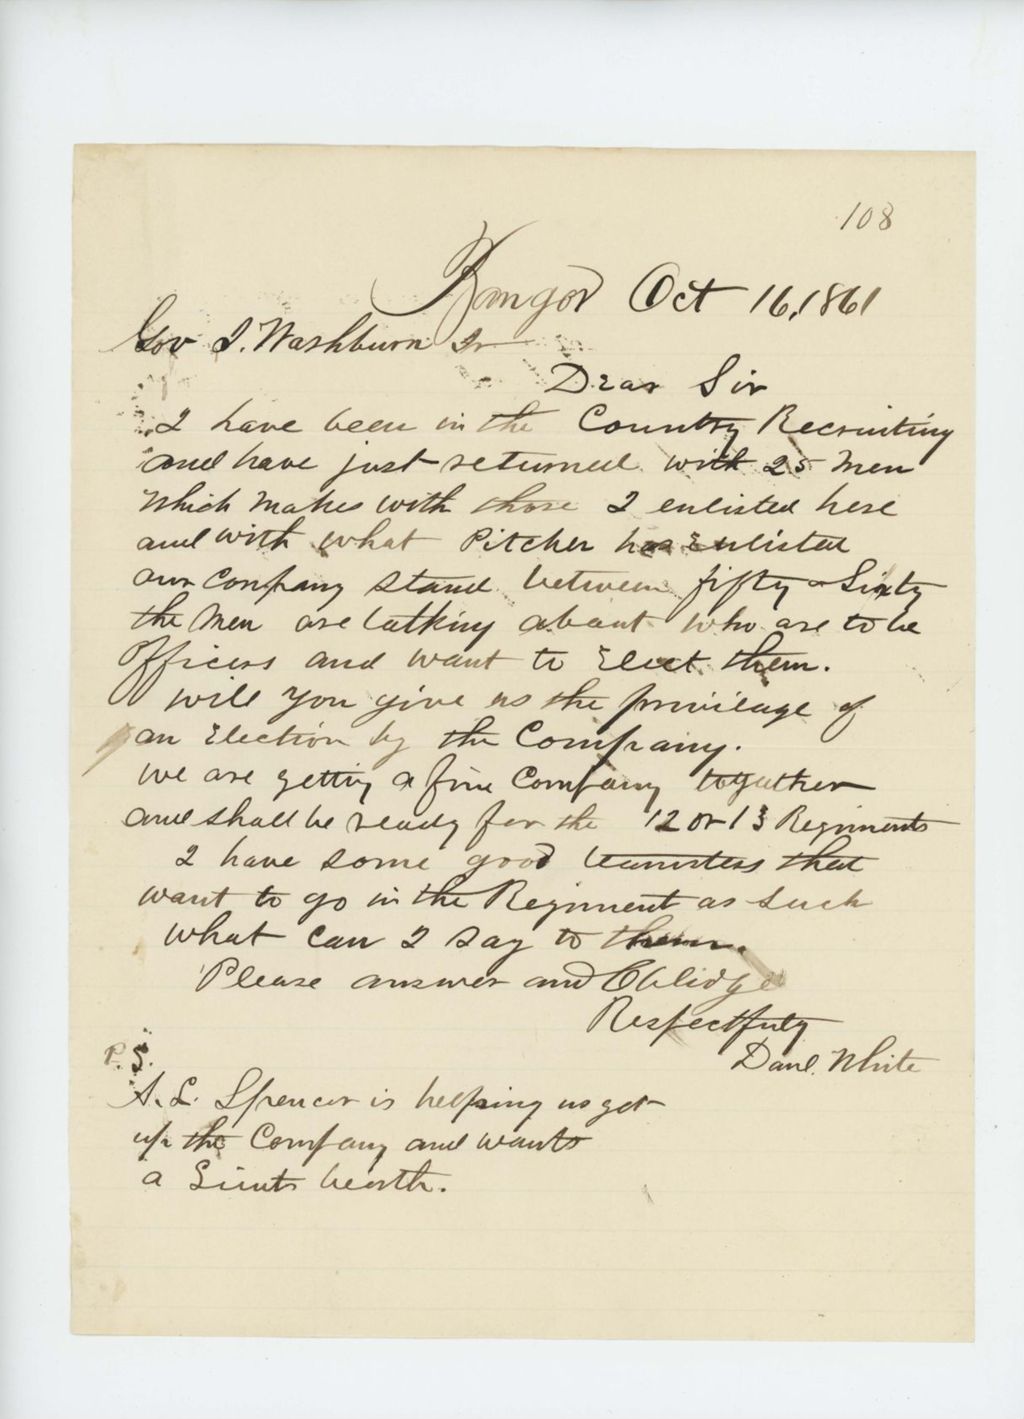 108
Bangor Oct 16, 1861
Gov I. Washburn Jr
Dear Sir
I have been in the Country Recruiting
and have just returned with 25 Men
Which Makes with those I enlisted here
and with what Pitcher has Enlisted
our Company stand between fifty & Sixty
the Men are talking about who are to be
Officers and want to Elect them.
Will you give us the privilage of
an Election by the Company.
We are getting a fine Company together
and shall be ready for the 12 or 13 Regiments
I have some good teamsters that
want to go in the Regiment as such
What can I say to them.
Please answer and Oblidge
Respectfuly
Danl. White
P.S.
A. L. Spencer is helping us get
up the Company and wants
a Lieuts berth.